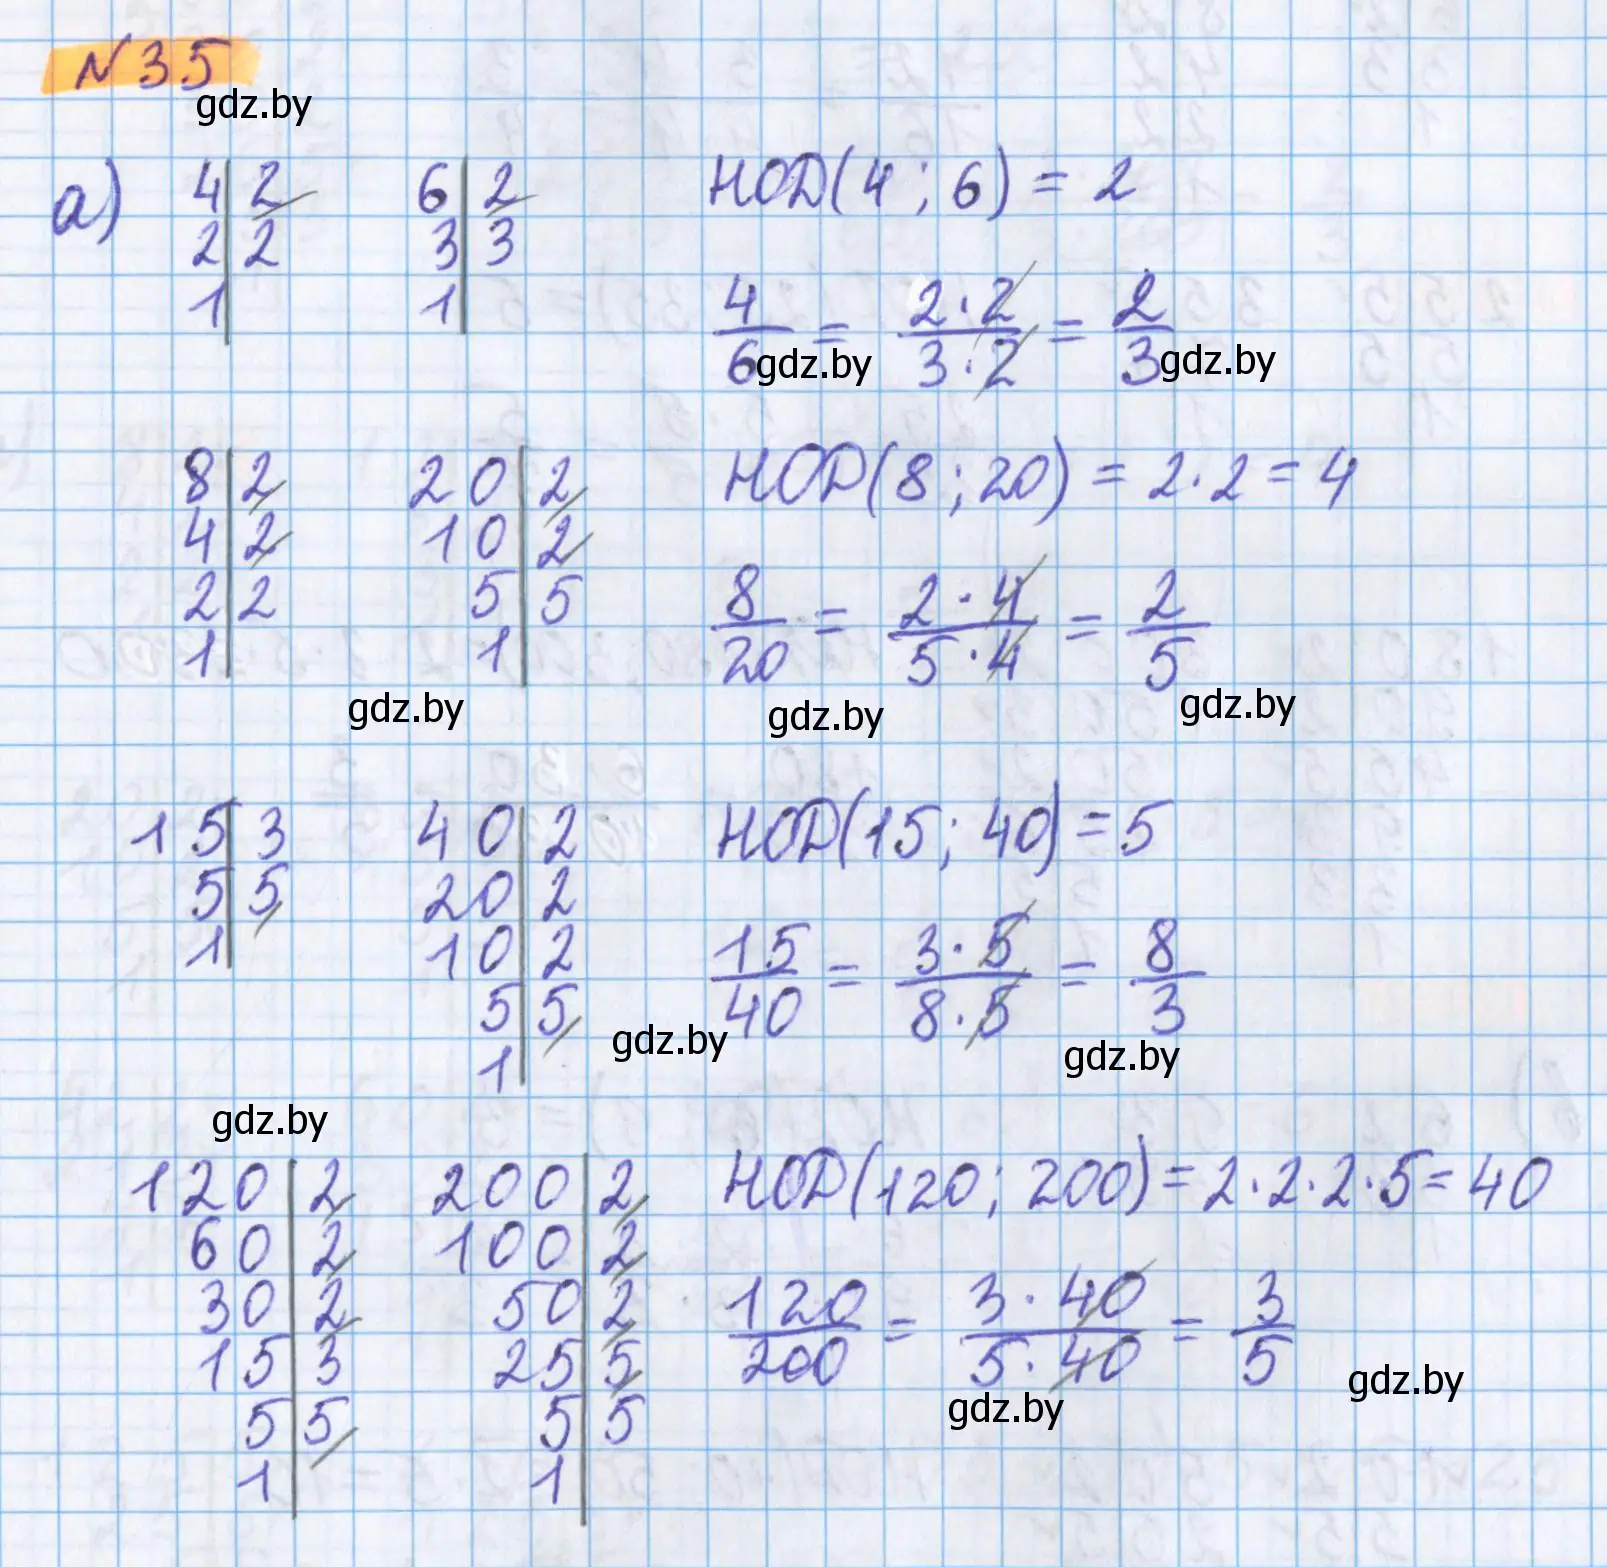 N35
gdz.by
а) 4 | 2 6 | 2 НОД(4; 6) = 2
2 | 2 3 | 3
1 | 1 |
4/6 = 2·2/3·2 = 2/3
gdz.by gdz.by
8 | 2 20 | 2 НОД(8; 20) = 2·2 = 4
4 | 2 10 | 2
2 | 2 5 | 5
1 | 1 |
8/20 = 2·4/5·4 = 2/5
gdz.by gdz.by gdz.by
15 | 3 40 | 2 НОД(15; 40) = 5
5 | 5 20 | 2
1 | 10 | 2
5 | 5
1 |
15/40 = 3·5/8·5 = 8/3
gdz.by gdz.by
gdz.by
120 | 2 200 | 2 НОД(120; 200) = 2·2·2·5 = 40
60 | 2 100 | 2
30 | 2 50 | 2
15 | 3 25 | 5
5 | 5 5 | 5
1 | 1 |
120/200 = 3·40/5·40 = 3/5
gdz.by gdz.by